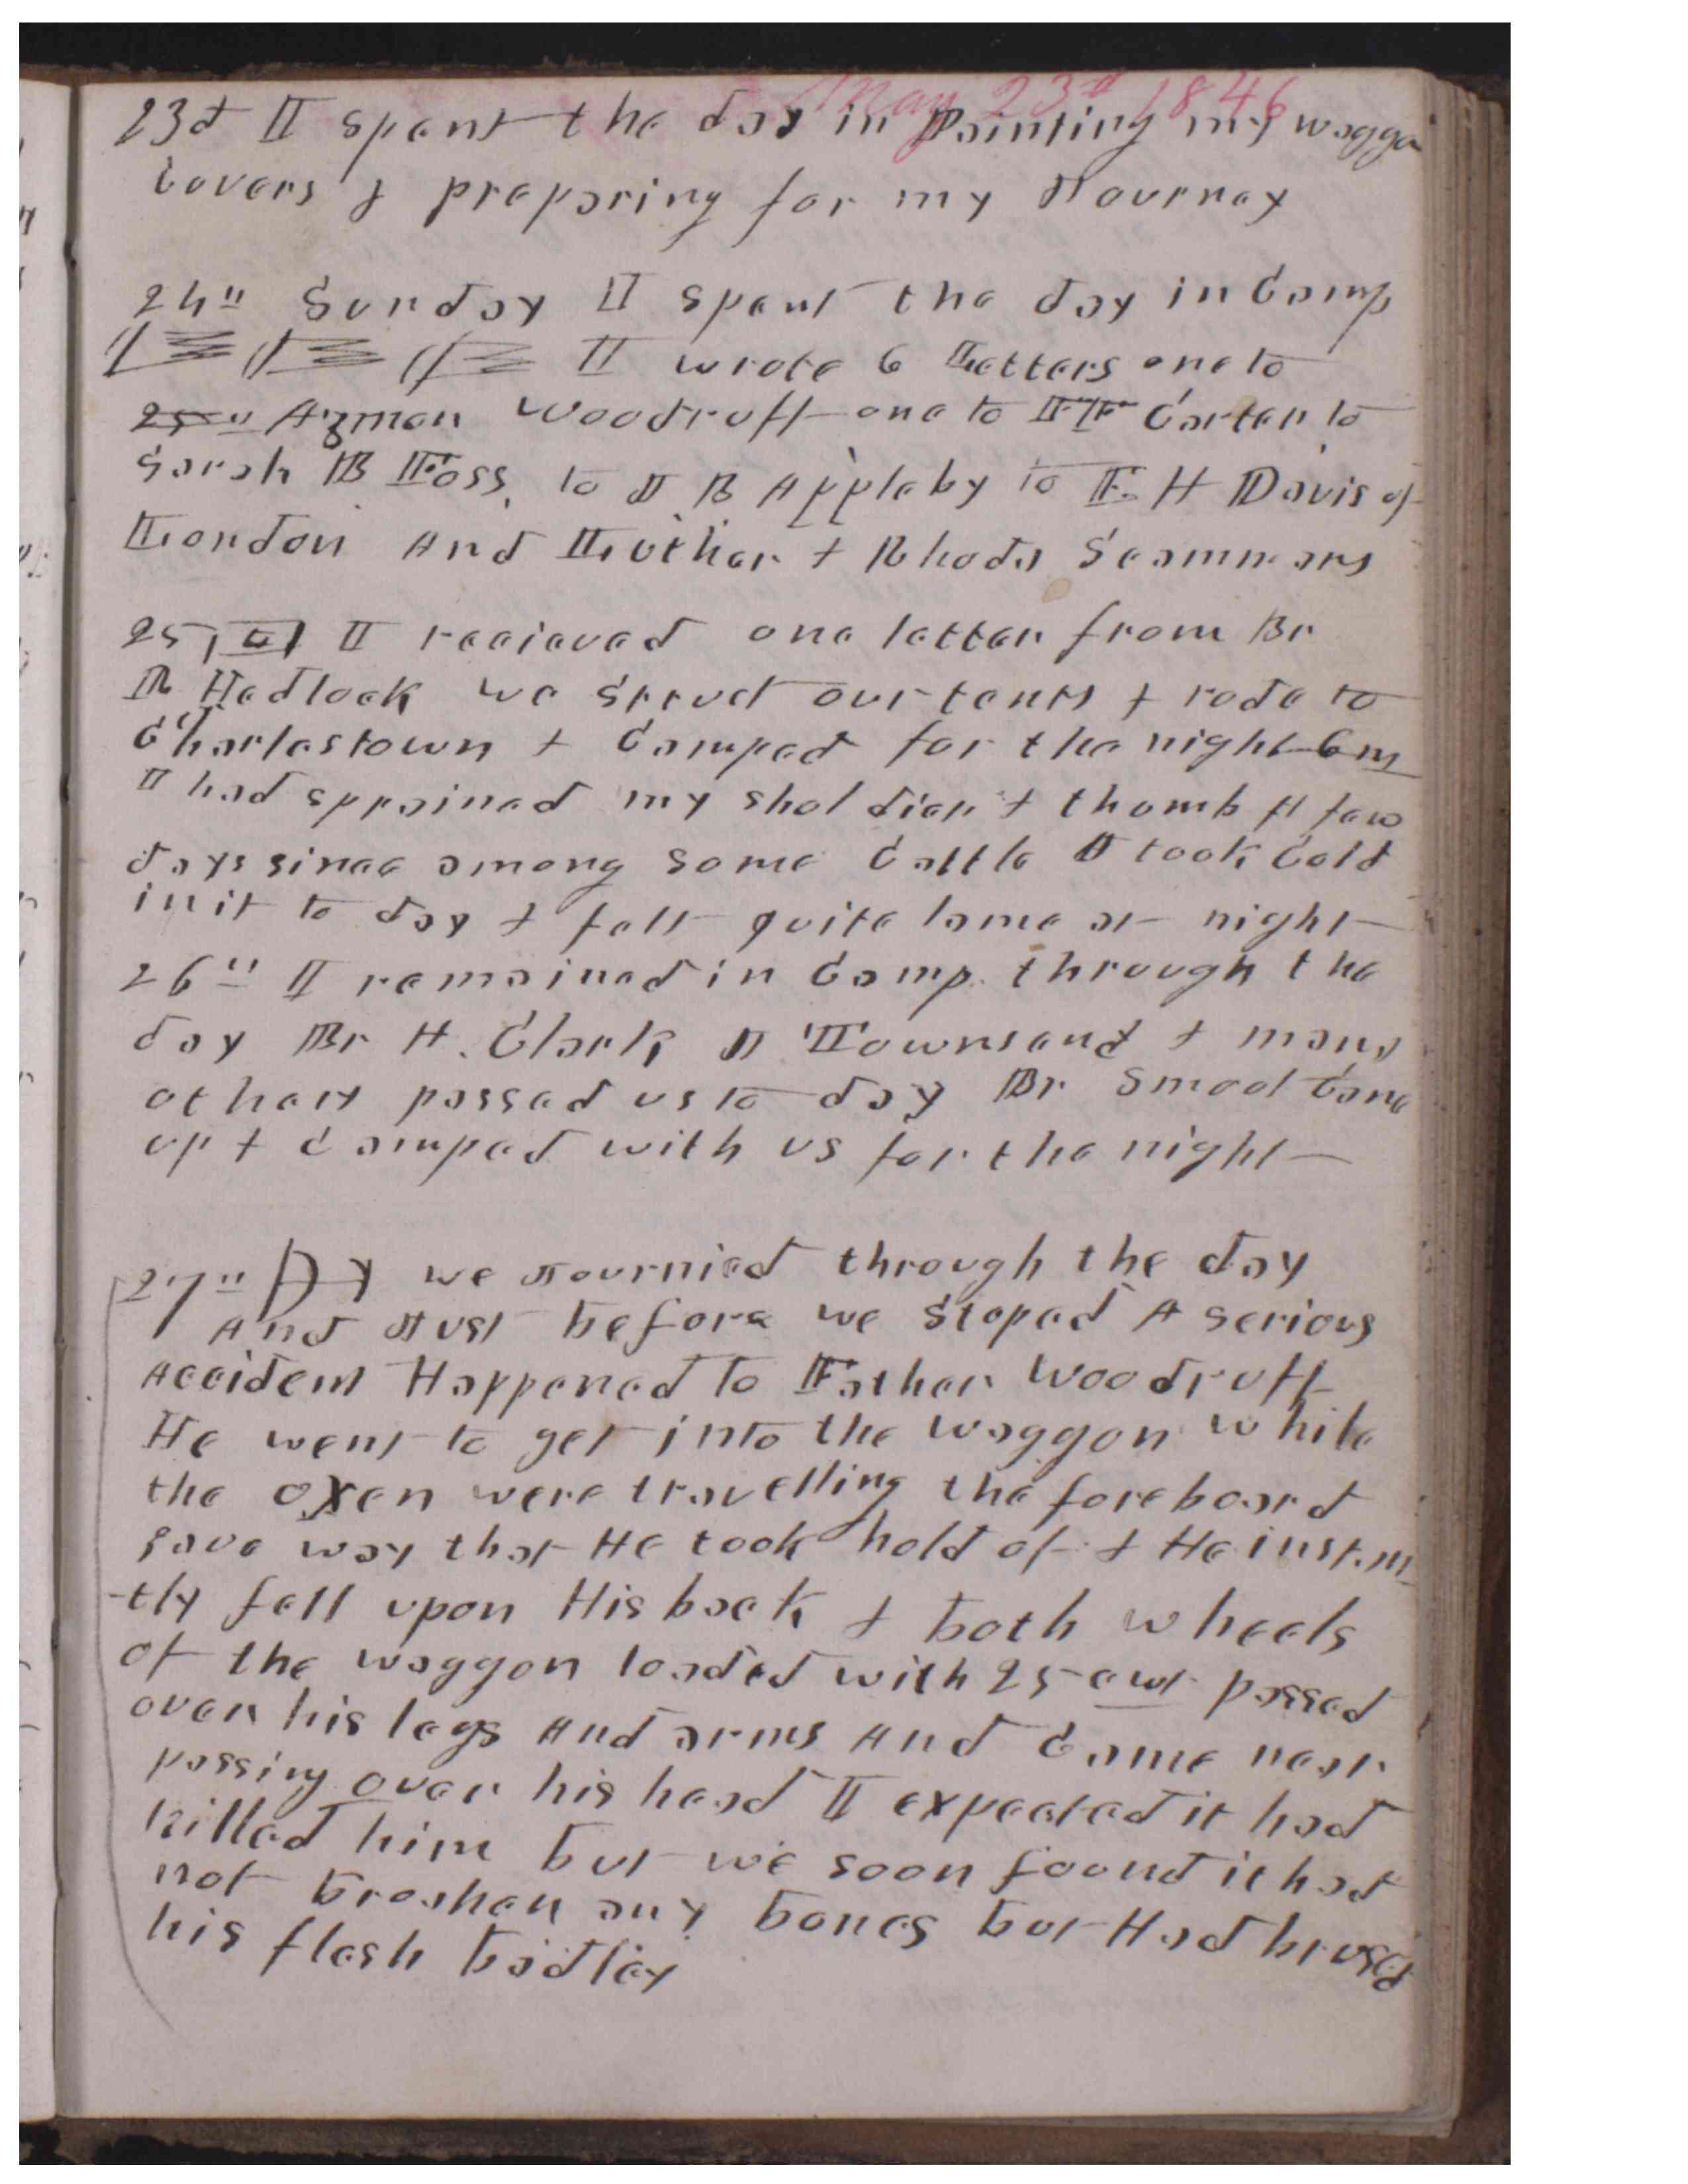 May 23d 1846
23d I spent the day in Painting my waggon
Covers & preparing for my Journey
24" Sunday I spent the day in Camp
I wrote 6 Letters one to
25" Azmon Woodruff one to I F Carter to
Sarah B Foss, to J B Appleby to E. H Davis of
London And Luther & Rhoda Scammans
25 I recieved one letter from Br
R Hedlock we Strud our tents & rode to
Charlestown & Camped for the night 6 m
I had sprained my sholdier & thomb A few
days since among some Cattle I took Cold
in it to day & felt quite lame at night
26" I remained in Camp through the
day Br H. Clark J Townsend & many
others passed us to day Br Smoot Came
up & Camped with us for the night
27" we Journied through the day
And Just before we Stoped A serious
Accident Happened to Father Woodruff
He went to get into the waggon while
the oxen were travelling the foreboard
gave way that He took hold of & He instan
-tly fell upon His back & both wheels
of the waggon loaded with 25 cwt passed
over his legs And arms And Came near
passing over his head I expected it had
killed him but we soon found it had
not broaken any bones but Had brused
his flesh badley